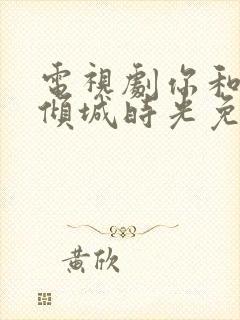 電視劇你和
傾城時光免
黃欣